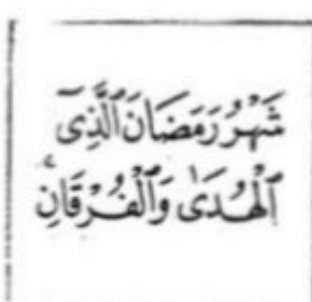 شَهْرُ رَمَضَانَ ٱلَّذِىٓ
ٱلْهُدَىٰ وَٱلْفُرْقَانِۚ